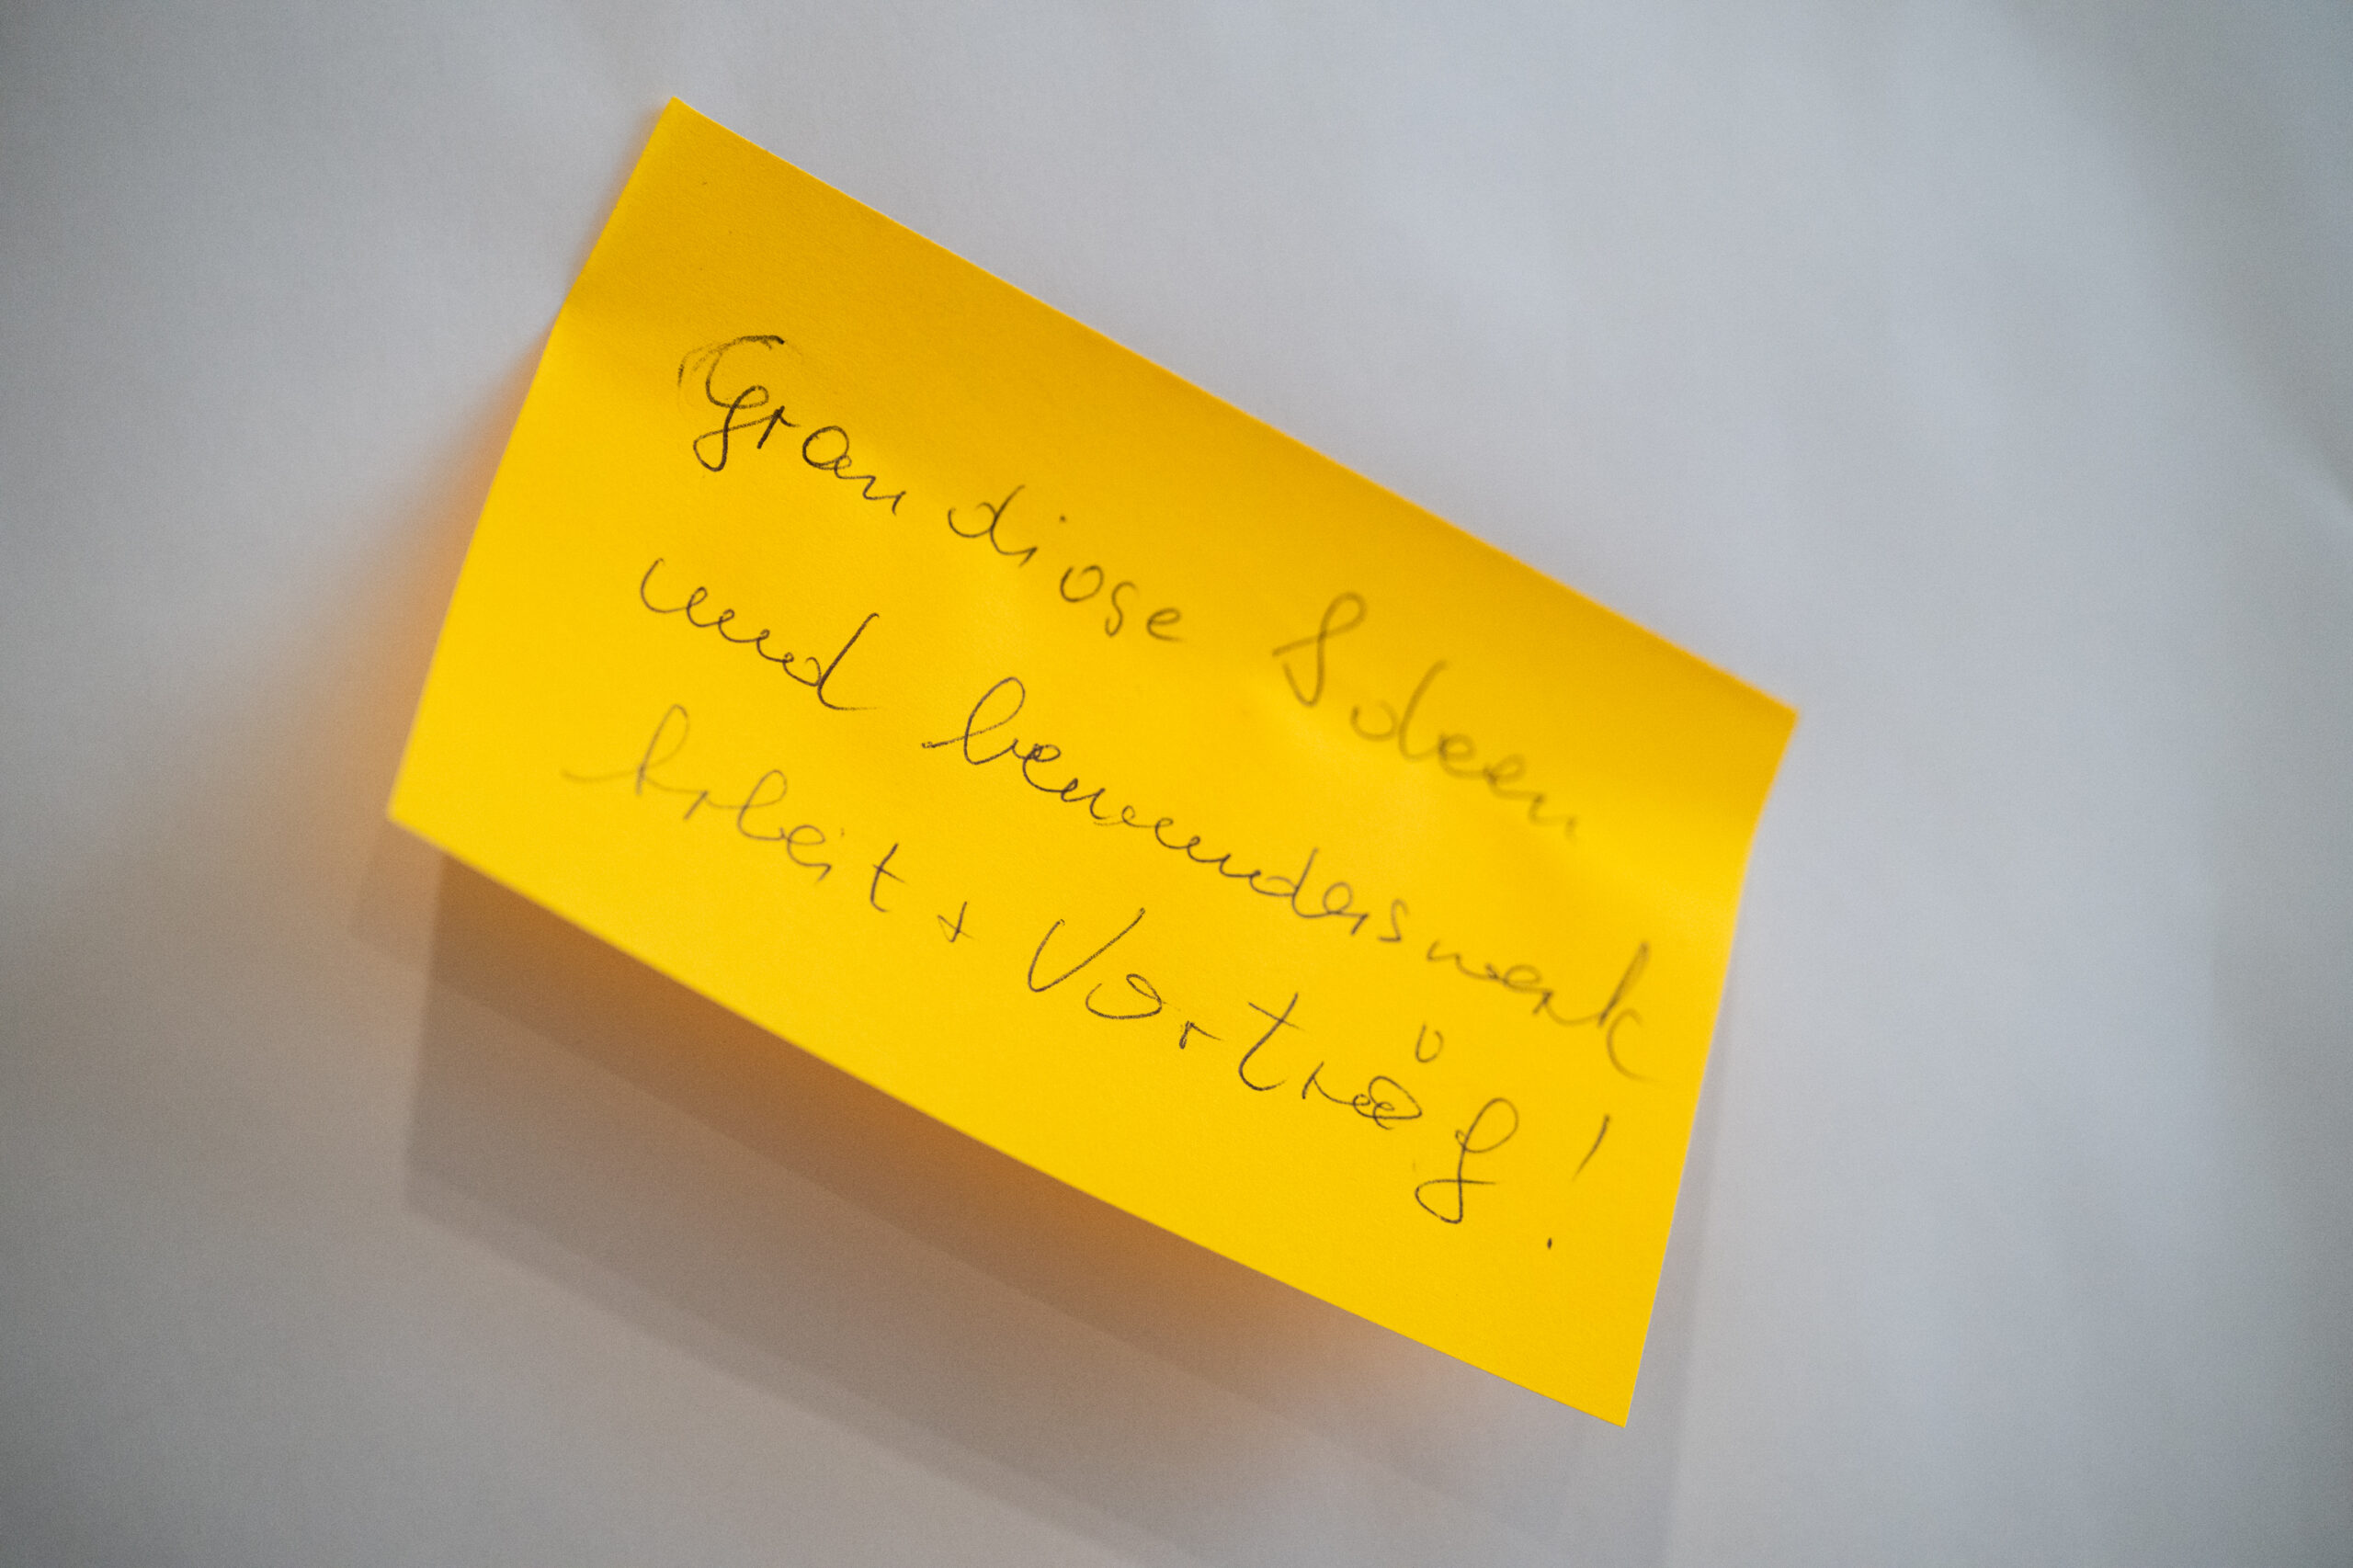 Grandiose Ideen
und bewunderswerk
Arbeit + Vorträg!